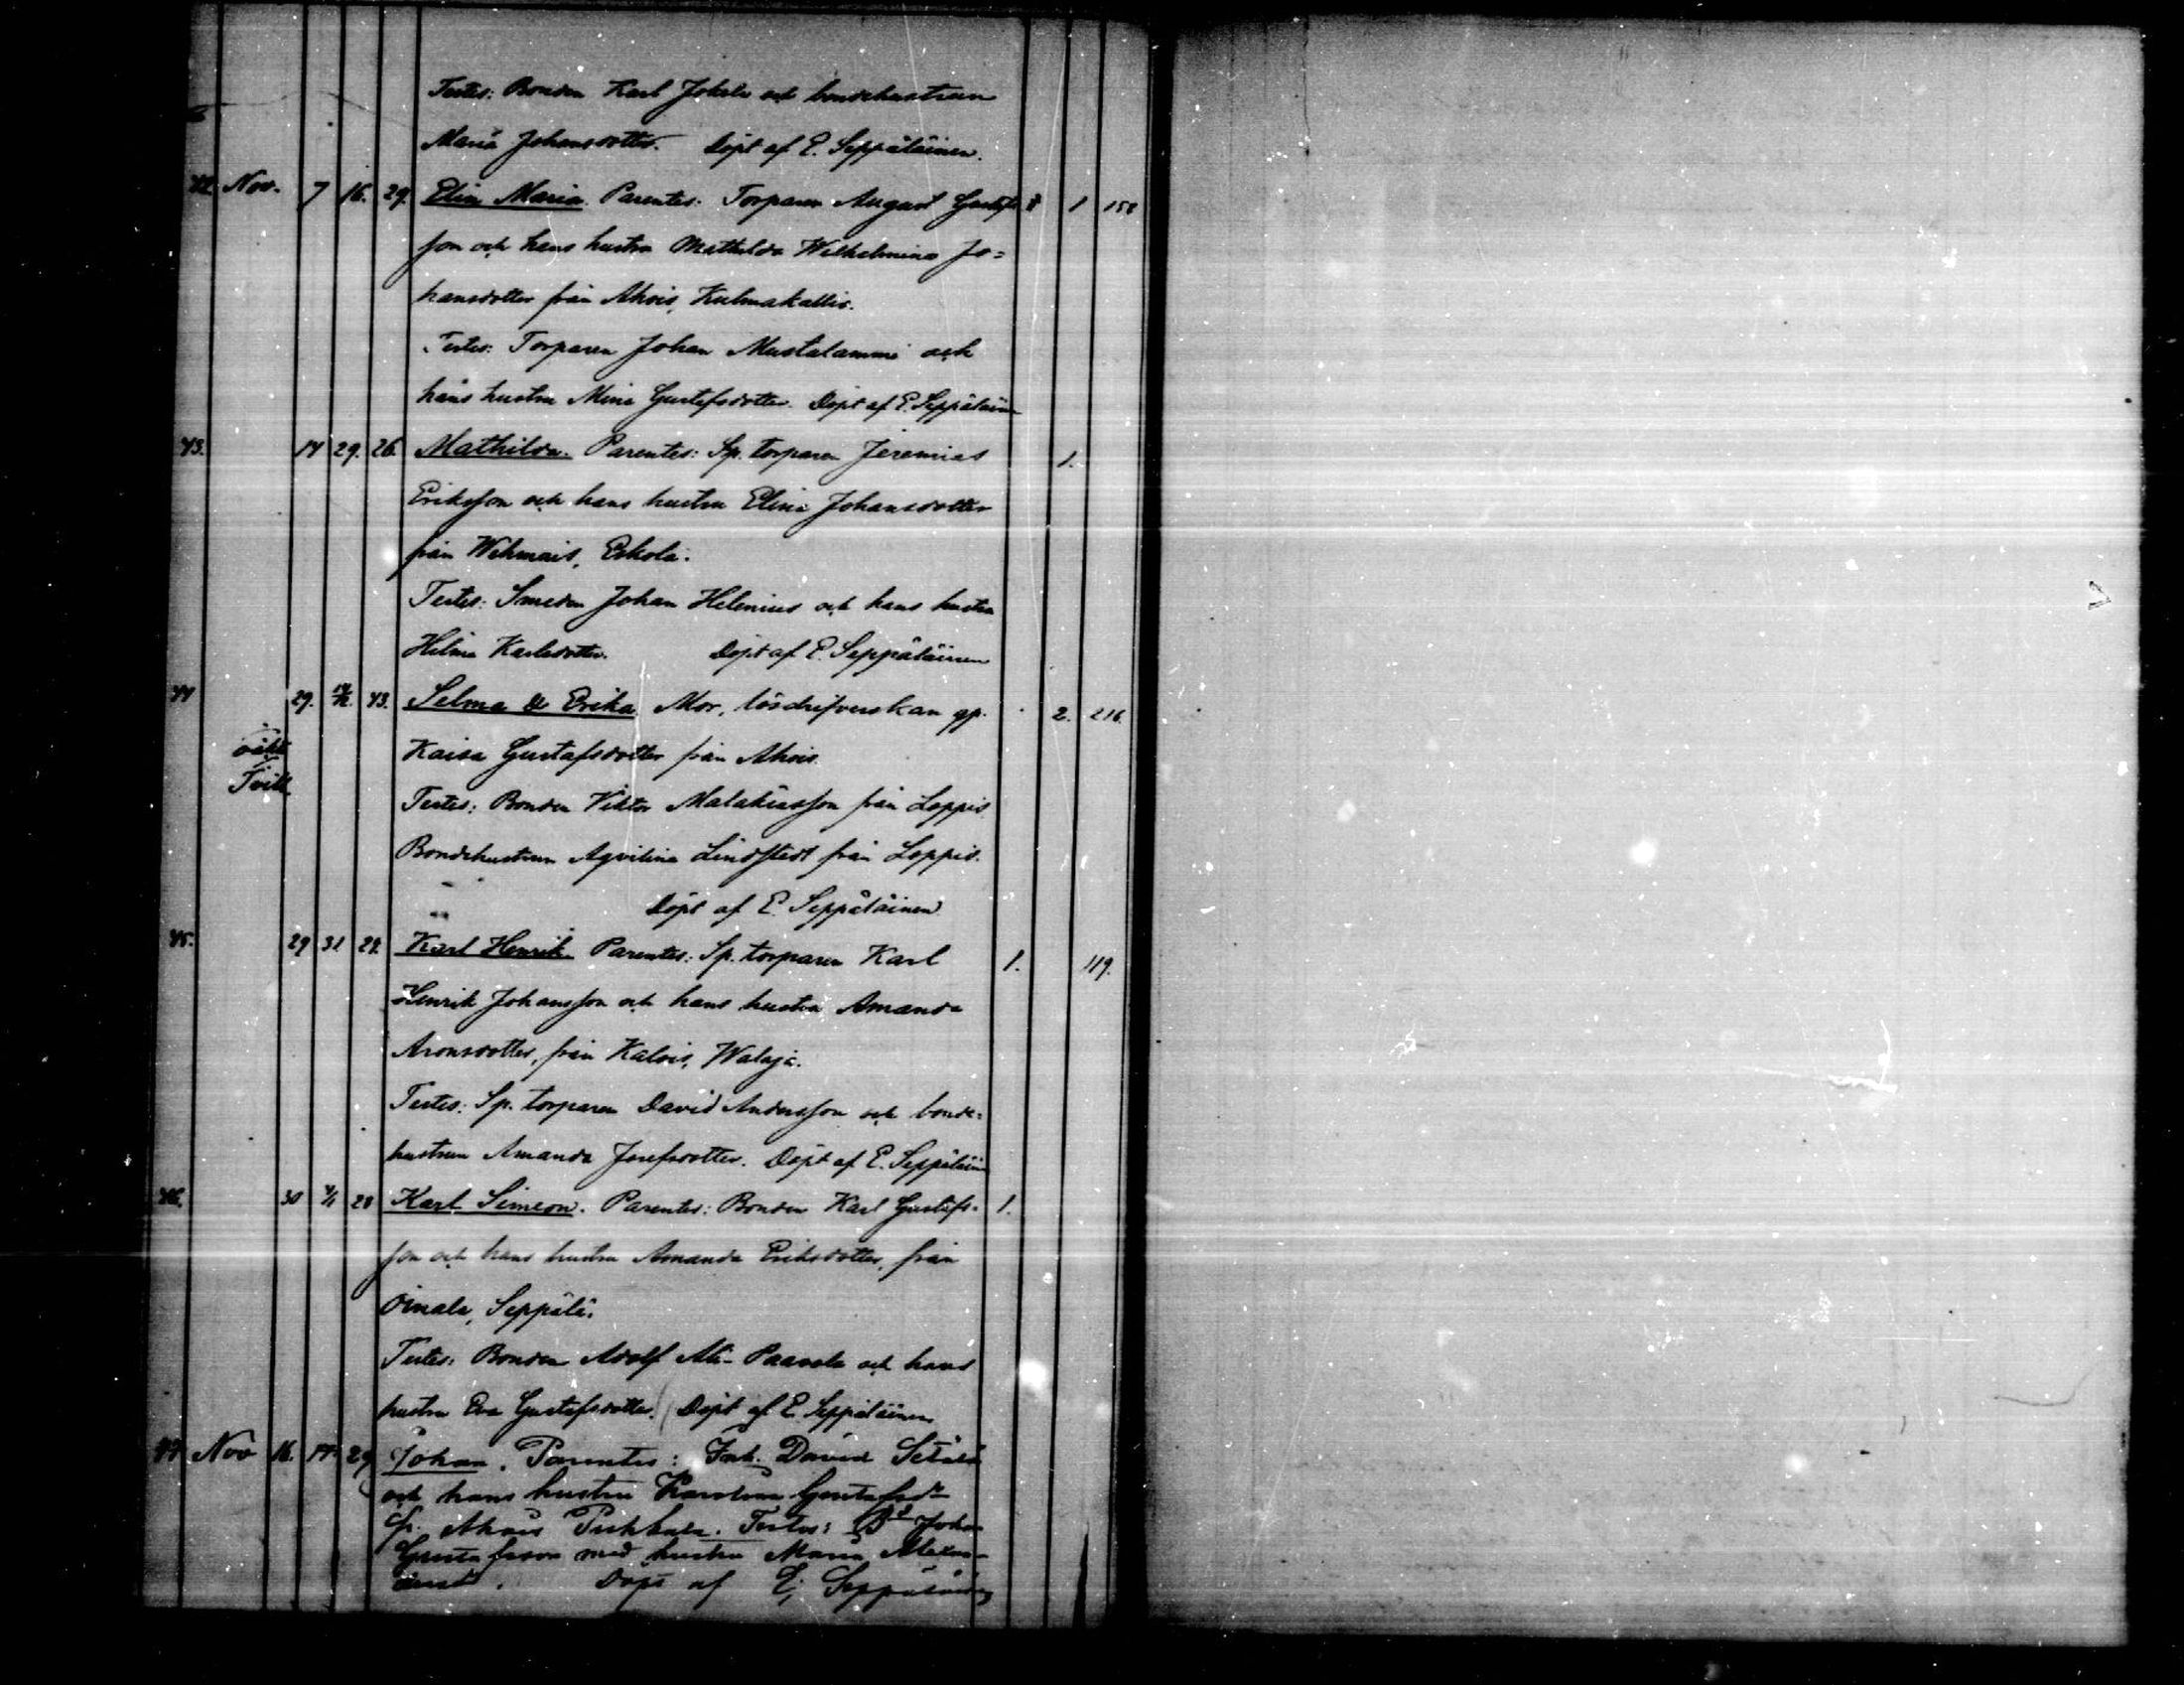 Testes: Bonden Karl Jokela och bondehustrun
Maria Johansdotter. Döpt af E. Seppäläinen.
42. Nov. 7 16. 29. Elin Maria. Parentes: Torparen August Gustafs- 1 158
son och hans hustru Mathilda Wilhelmina Jo=
hansdotter från Ahois, Kulmakallio.
Testes: Torparen Johan Mustalammi och
hans hustru Mina Gustafsdotter. Döpt af E. Seppäläinen
43. 14 29. 26. Mathilda. Parentes: Sp. torparen Jeremias 1.
Eriksson och hans hustru Elina Johansdotter
från Wehmais, Eskola.
Testes: Smeden Johan Helenius och hans hustru
Hilma Karlsdotter. Döpt af E. Seppäläinen
44 29. 14/12. 43. Selma & Erika Mor, lösdrifverskan gp. 2. 216.
oäkt
Kaisa Gustafsdotter från Ahois.
Tvill.
Testes: Bonden Viktor Malakiasson från Loppis
Bondehustrun Aqvilina Lindstedt från Loppis.
Döpt af E. Seppäläinen
45. 29 31 22. Karl Henrik. Parentes: Sp. torparen Karl 1. 119.
Henrik Johansson och hans hustru Amanda
Aronsdotter, från Kalois, Walaja.
Testes: Sp. torparen David Andersson och bonde=
hustrun Amanda Josefsdotter. Döpt af E. Seppäläinen
46. 30 28 Karl Simeon. Parentes: Bonden Karl Gustafs- 1.
son och hans hustru Amanda Eriksdotter, från
Oinala, Seppälä.
Testes: Bonden Adolf Ali-Paavola och hans
hustru Eva Gustafsdotter. Döpt af E. Seppäläinen
47 Nov 16. 17. 29 Johan. Parentes: David Setälä
och hans hustru Karolina Gustafsdr
fr. Ahois Testes: Bd Johan
Gustafsson med hustru Maria Alexan-
dersd. Döpt af E. Seppäläinen